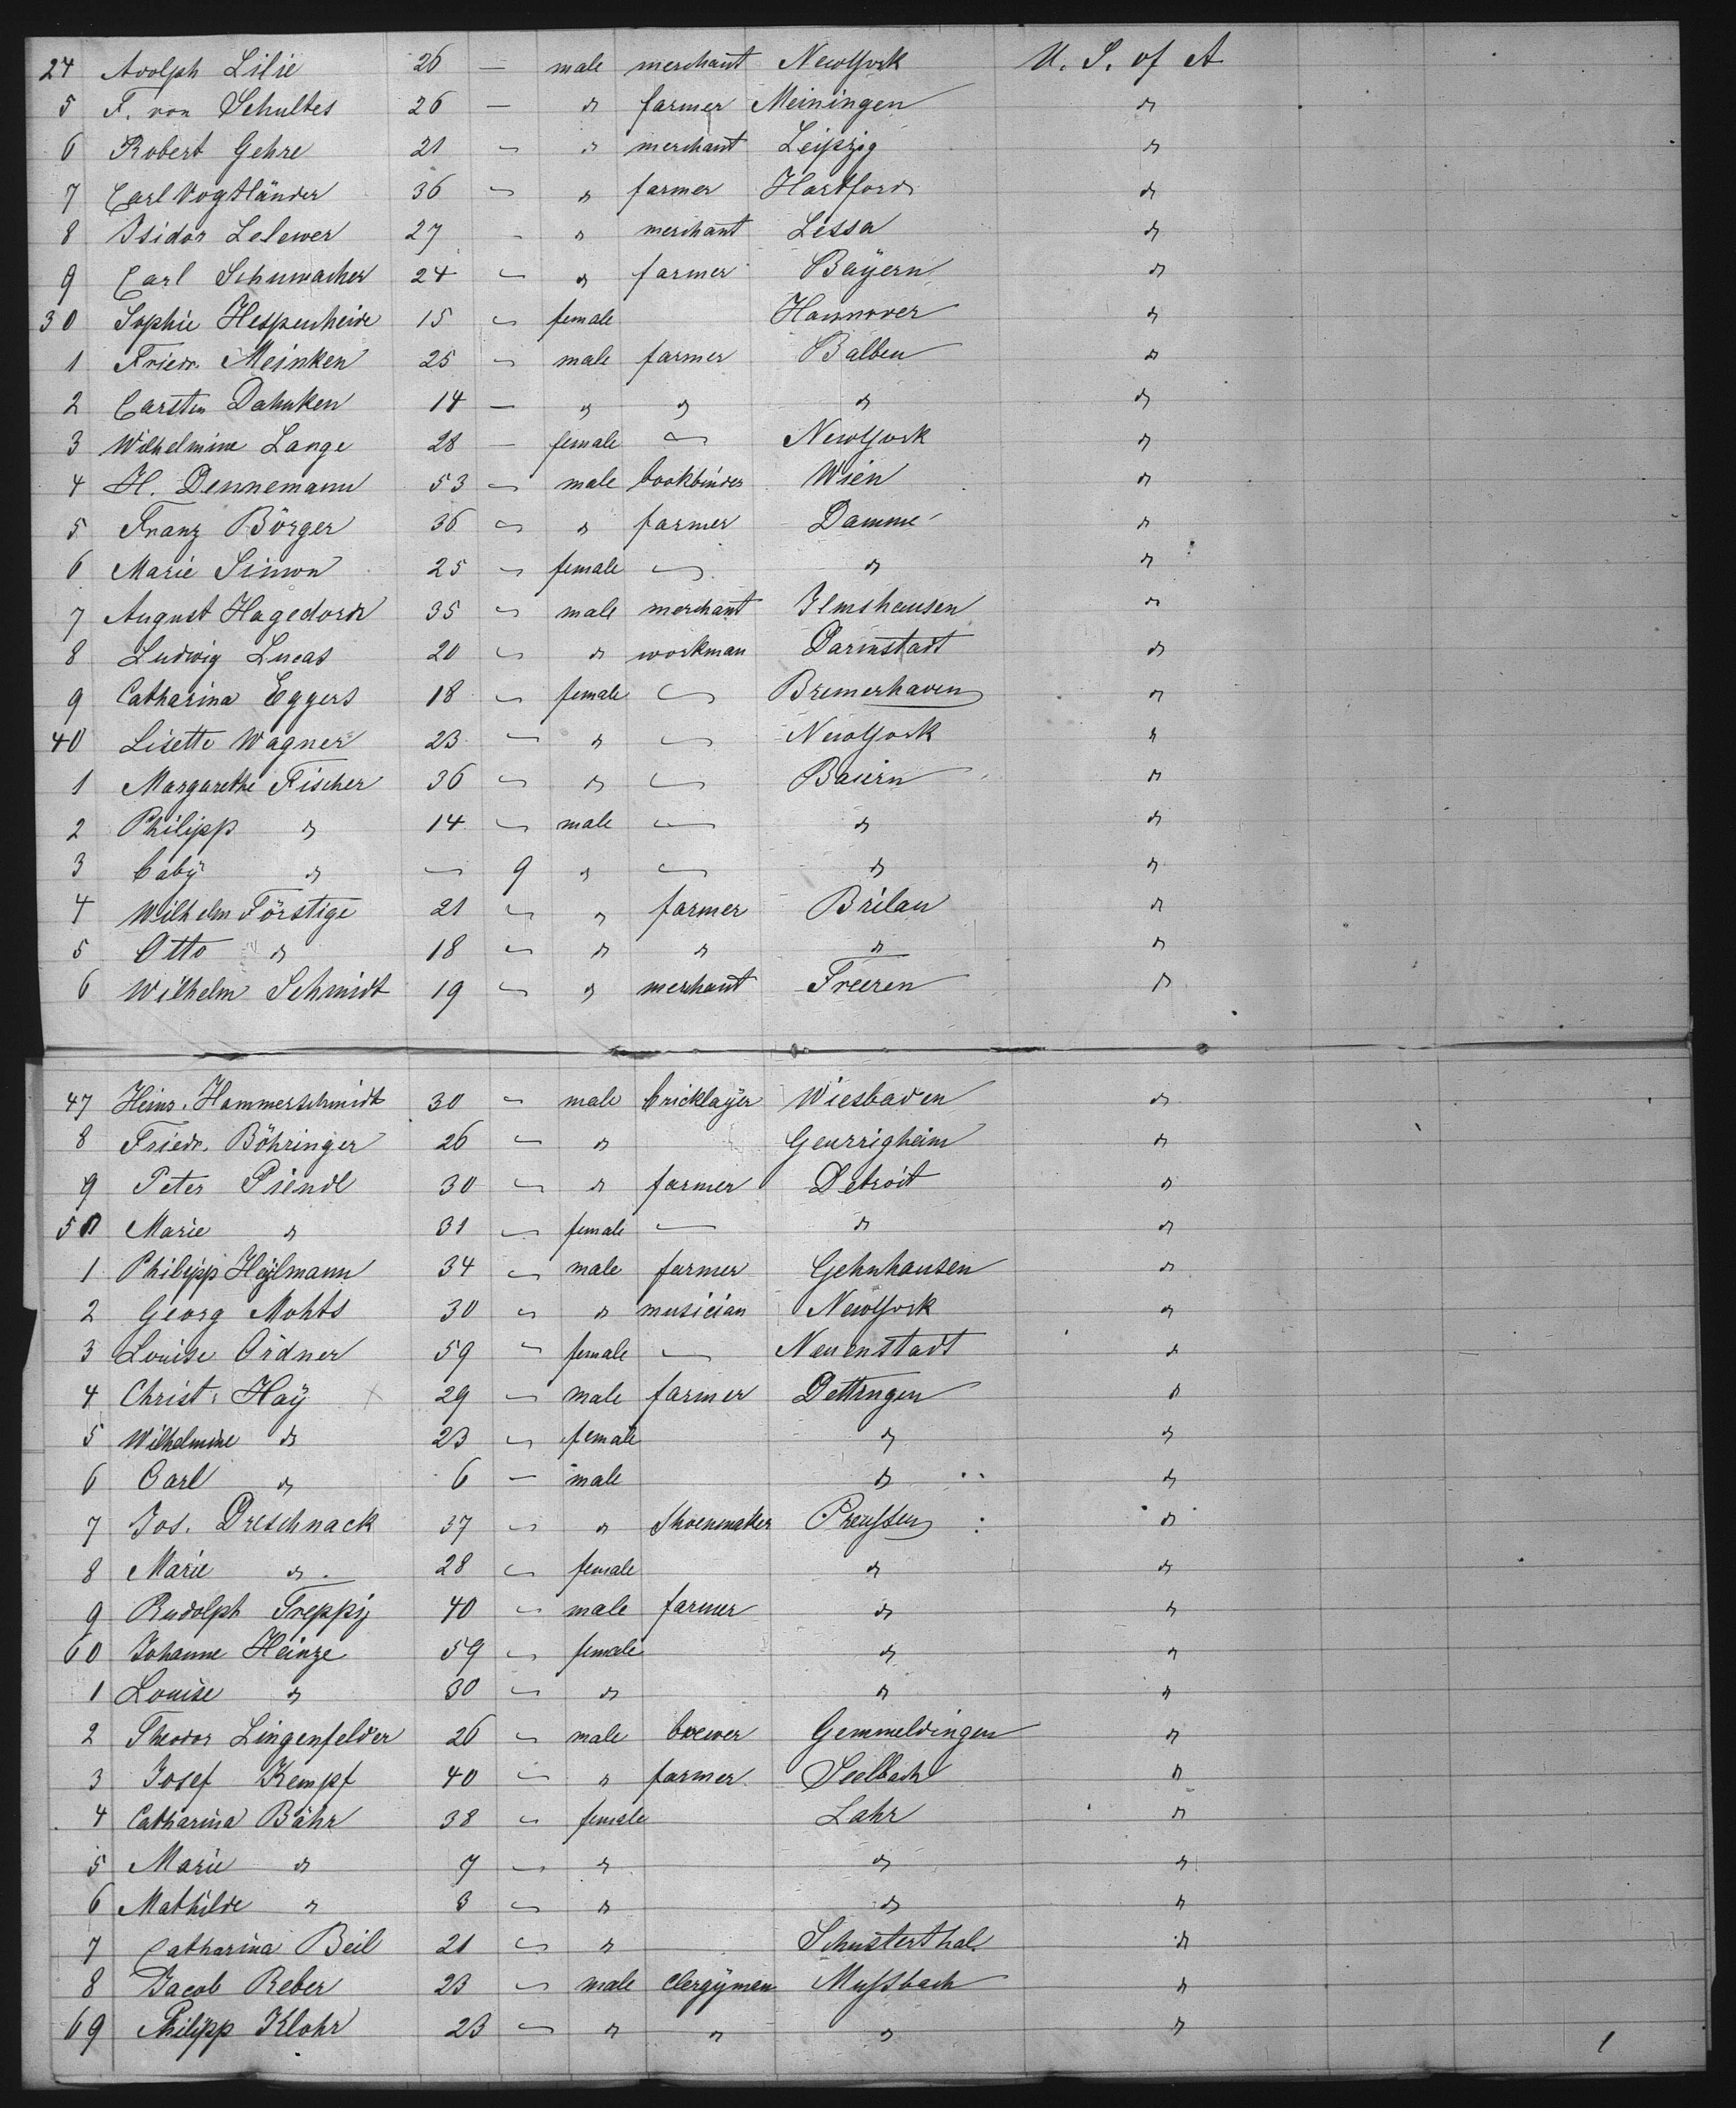 24 Adolph Lilie 26 — male merchant NewYork U. S. of A
5 F. von Schultes 26 — " farmer Meiningen "
6 Robert Gehre 21 — " merchant Leipzig "
7 Carl Vogtländer 36 — " farmer Hartford "
8 Isidor Lelewer 27 - " merchant Lissa "
9 Carl Schumacher 24 — " farmer Bayern "
30 Sophie Hespenheide 15 — female Hannover "
1 Friedr. Meinken 25 — male farmer Balben "
2 Carsten Dahnken 14 — " " " "
3 Wilhelmine Lange 28 — female — NewYork "
4 H. Dennemann 53 — male bookbinder Wien "
5 Franz Börger 36 — " farmer Damme "
6 Marie Simon 25 — female — " "
7 August Hagedorn 35 — male merchant Ilmshausen "
8 Ludwig Lucas 20 — " workman Darmstadt "
9 Catharina Eggers 18 — female — Bremerhaven "
40 Lisette Wagner 23 — " — NewYork "
1 Margarethe Fischer 36 — " — Baiern "
2 Philipp " 14 — male — " "
3 baby " — 9 " — " "
4 Wilhelm Förstige 21 — " farmer Brilau "
5 Otto " 18 — " " " "
6 Wilhelm Schmidt 19 — " merchant Freeren "
47 Heinr. Hammerschmidt 30 — male bricklayer Wiesbaden "
8 Friedr. Böhringer 26 — " Geurrigheim "
9 Peter Piendl 30 — " farmer Detroit "
50 Marie " 31 — female — " "
1 Philipp Heylmann 34 — male farmer Gehnhausen "
2 Georg Mohts 30 — " musician NewYork "
3 Louise Ordner 59 — female — Nauenstadt "
4 Christ. Hay 29 — male farmer Dettingen "
5 Wilhelmine " 23 — female " "
6 Carl " 6 — male " "
7 Jos. Dreschnack 37 — " Shoenmaker Preussen "
8 Marie " 28 — female " "
9 Rudolph Treppij 40 — male farmer " "
60 Johanne Heinze 59 — female " "
1 Louise " 30 — " " "
2 Theodor Lingenfelder 26 — male brewer Gemmeldingen "
3 Josef Kempf 40 — " farmer Seelbach "
4 Catharina Bähr 38 — female Lahr "
5 Marie " 7 — " " "
6 Mathilde " 3 — " " "
7 Catharina Beil 21 — " Schusterthal "
8 Jacob Reber 23 — male Clergyman Mussbach "
69 Philipp Klohr 23 — " " " "
1